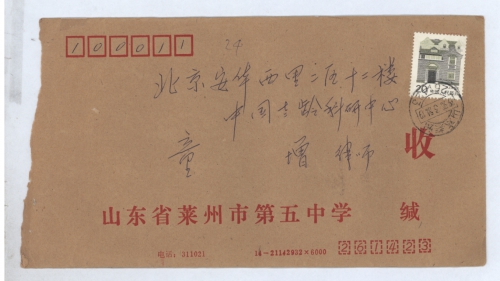 100011
24
北京安华西里二区十二楼
中国老龄科研中心
童 增 律师
收
山东省莱州市第五中学 缄
电话：311021
261423